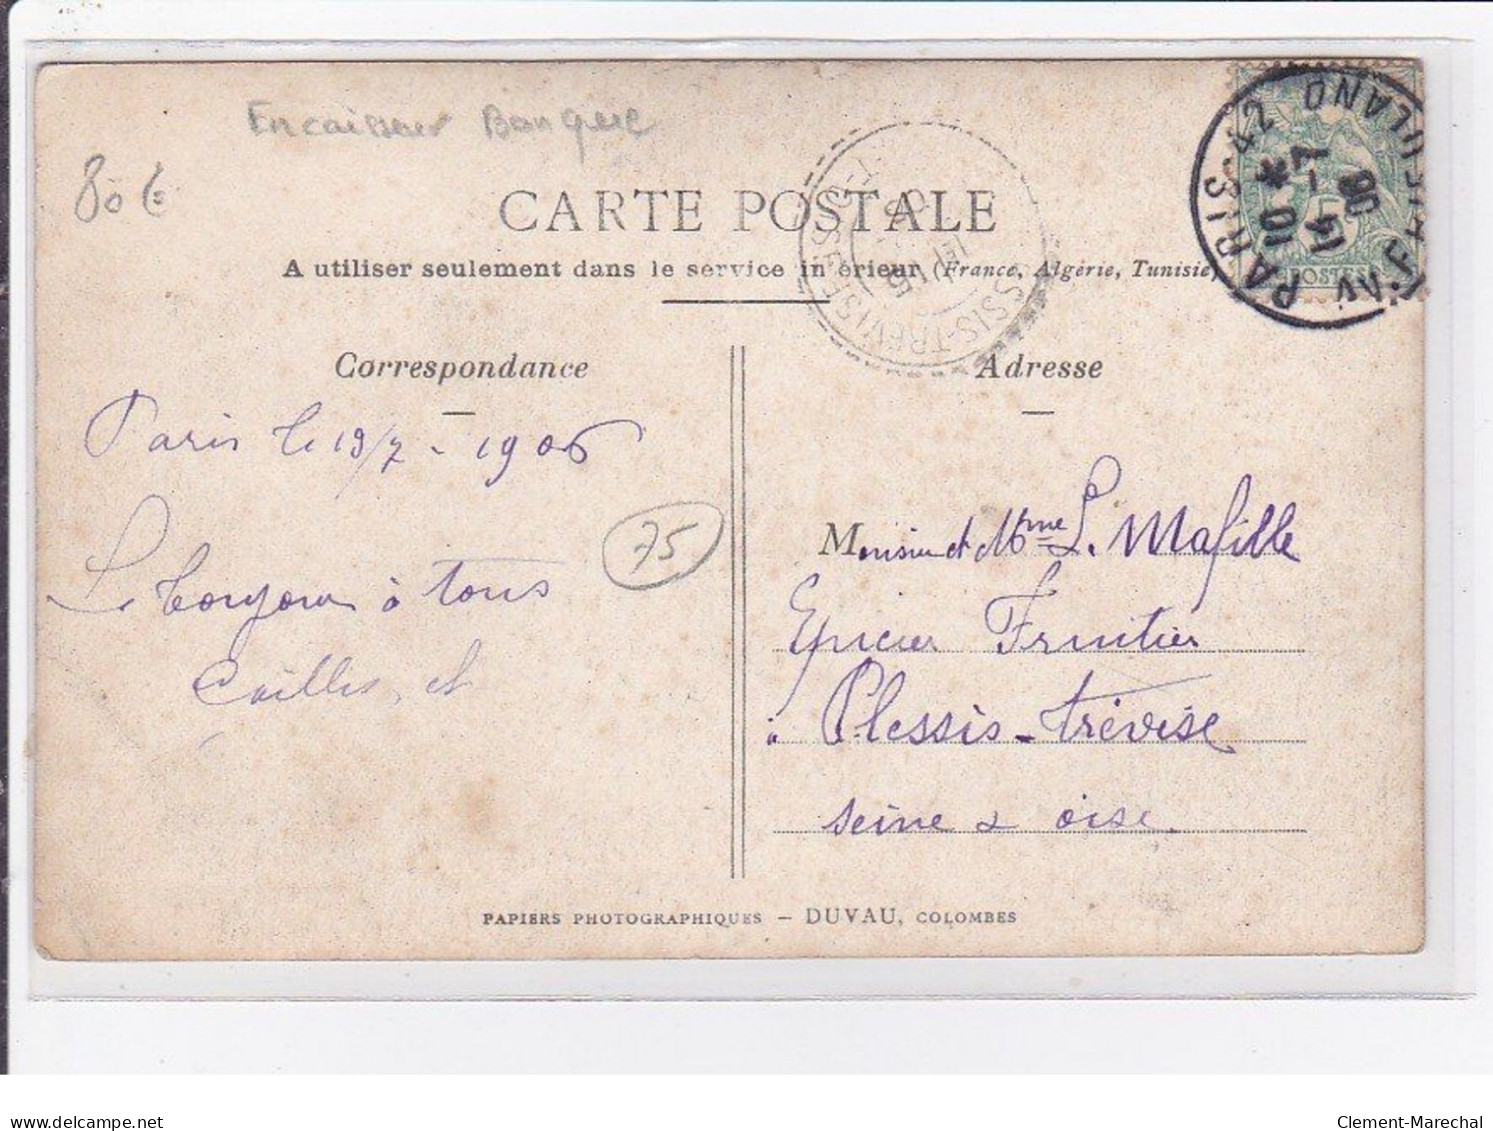 Encaisseur Banque
80 €
CARTE POSTALE
A utiliser seulement dans le service in érieur (France, Algérie, Tunisie)
PARIS-42
10 *
14 - 7
06
POSTES
Correspondance
Adresse
Paris le 13/7 - 1906
75
Le bonjour à tous
et
Monsieur et Mme L. Mafille
Epicier Fruitier
à Plessis-Trévise
Seine & Oise
PAPIERS PHOTOGRAPHIQUES — DUVAU, COLOMBES
www.delcampe.net
Clement-Marechal